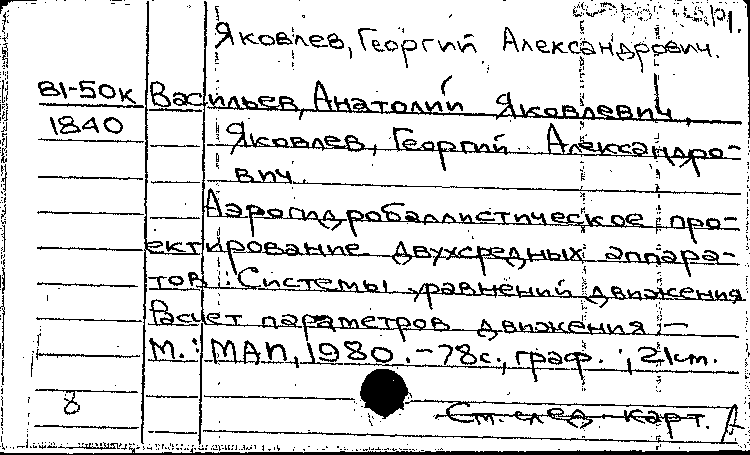 Яковлев, Георгий Александрович.
В1-50к Васильев, Анатолий Яковлевич,
1840 Яковлев, Георгий Александро-
вич.
Аэрогидробаллистическое про-
ектирование двухсредных аппара-
тов: Системы уравнений движения
Расчет параметров движения. —
М.: МАИ, 1980. - 78с., граф.; 21см.
8 См. след. карт. А